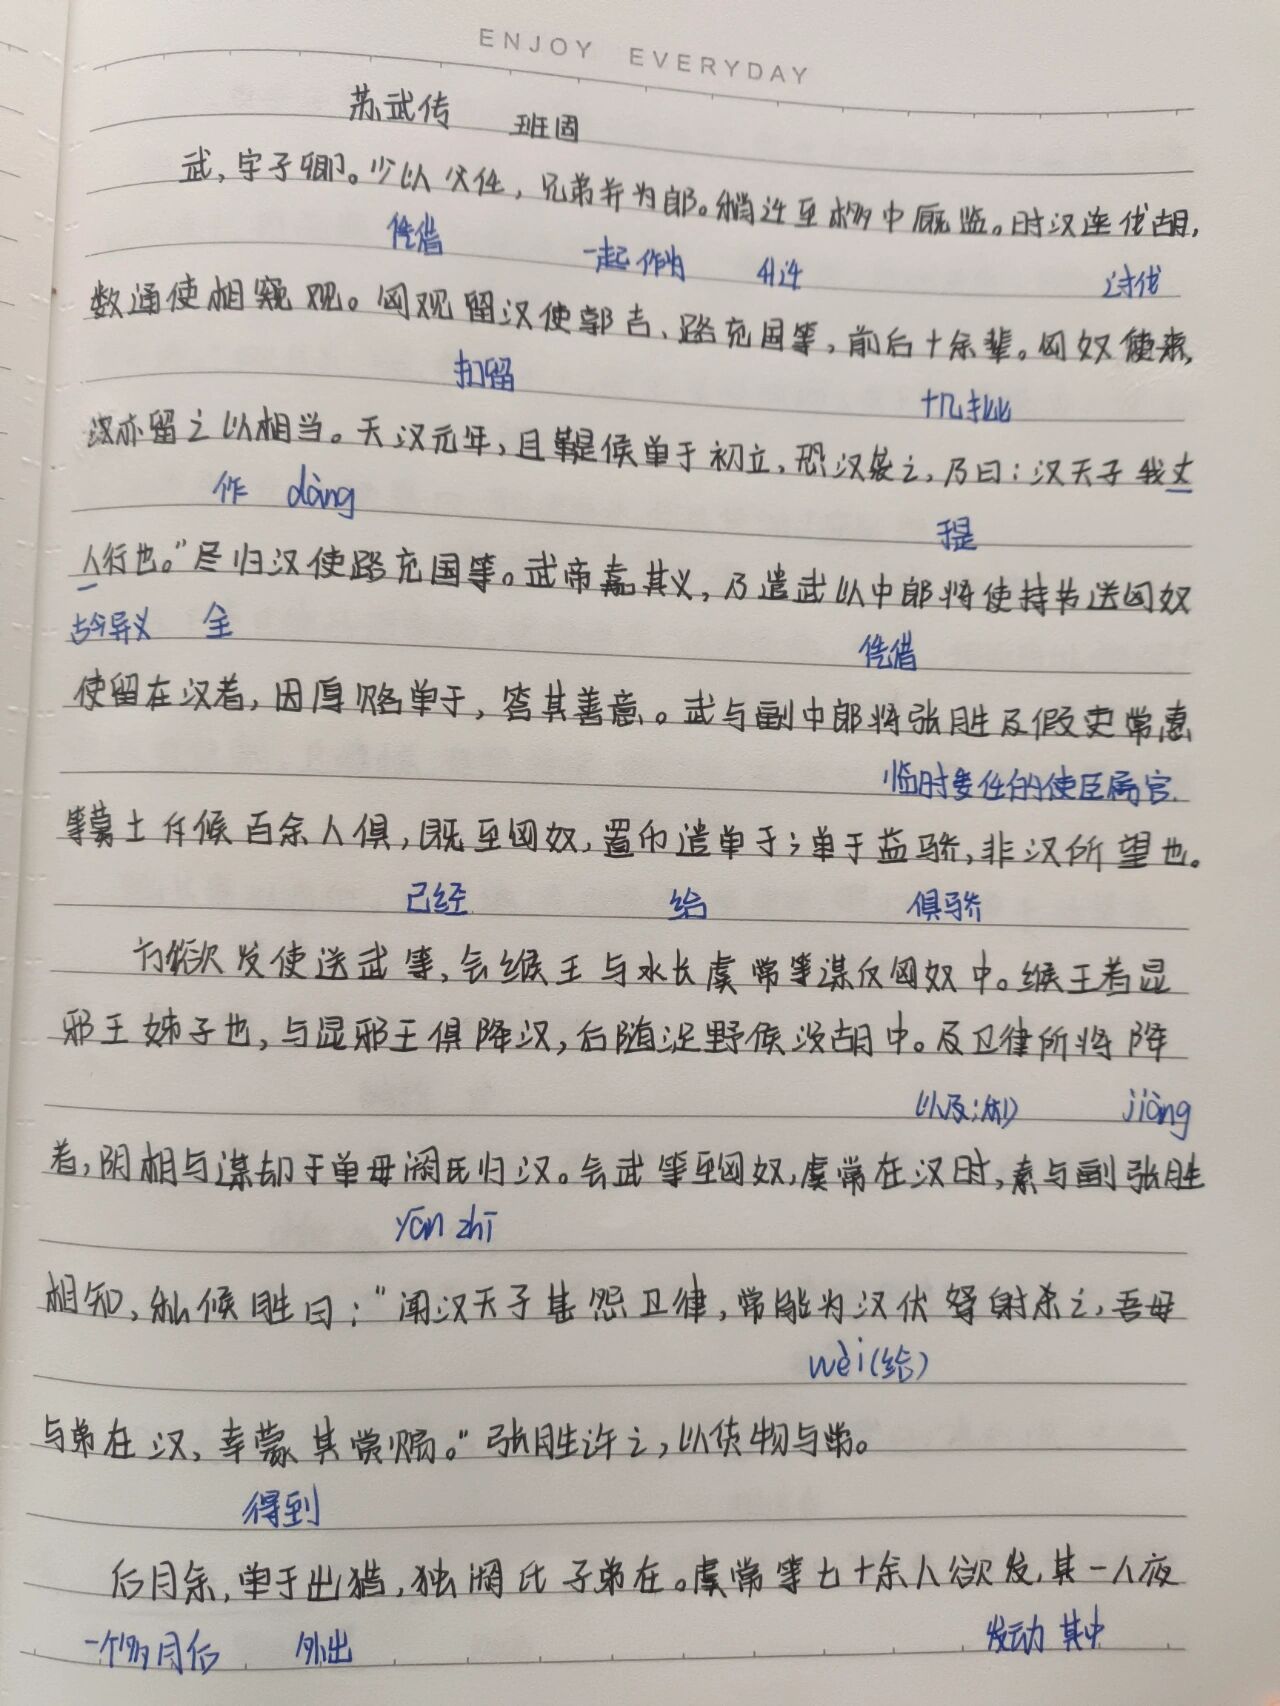 ENJOY EVERYDAY
苏武传 班固
武,字子卿。少以父任,兄弟并为郎。稍迁至栘中厩监。时汉连伐胡,
凭借 一起作为 升迁 讨伐
数通使相窥观。匈观留汉使郭吉、路充国等,前后十余辈。匈奴使来,
扣留 十几批
汉亦留之以相当。天汉元年,且鞮侯单于初立,恐汉袭之,乃曰:汉天子我丈
作 dàng 是
人行也。"尽归汉使路充国等。武帝嘉其义,乃遣武以中郎将使持节送匈奴
古今异义 全 凭借
使留在汉者,因厚赂单于,答其善意。武与副中郎将张胜及假吏常惠
临时委任的使臣属官
等募士斥候百余人俱,既至匈奴,置币遗单于;单于益骄,非汉所望也。
已经 给 倨骄
方欲发使送武等,会缑王与水长虞常等谋反匈奴中。缑王者昆
邪王姊子也,与昆邪王俱降汉,后随浞野侯没胡中。及卫律所将降
以及(和) jiàng
者,阴相与谋劫于单母阏氏归汉。会武等至匈奴,虞常在汉时,素与副张胜
yān zhī
相知,私候胜曰:"闻汉天子甚怨卫律,常能为汉伏弩射杀之,吾母
wèi(给)
与弟在汉,幸蒙其赏赐。"张胜许之,以货物与常。
得到
后月余,单于出猎,独阏氏子弟在。虞常等七十余人欲发,其一人夜
一个多月后 外出 发动 其中